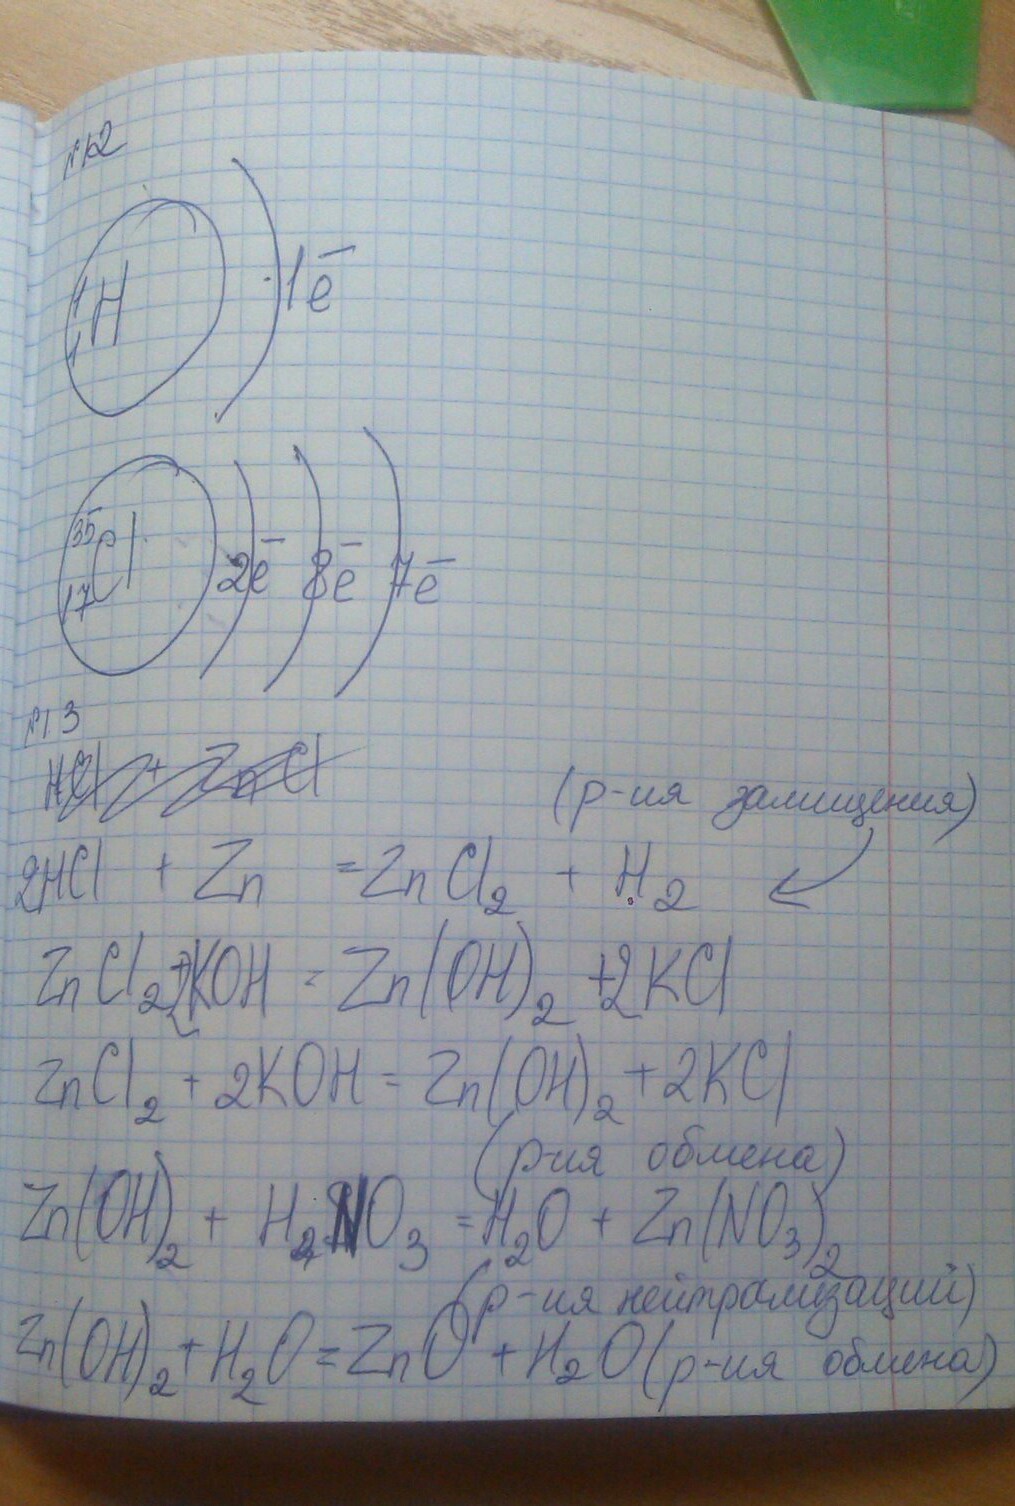 №12
1 1 H 1ē
35 17 Cl 2ē 8ē 7ē
№13
HCl + ZnCl
(р-ия замищения)
2HCl + Zn = ZnCl₂ + H₂
ZnCl₂ + 2KOH = Zn(OH)₂ + 2KCl
ZnCl₂ + 2KOH = Zn(OH)₂ + 2KCl
(р-ия обмена)
Zn(OH)₂ + H₂NO₃ = H₂O + Zn(NO₃)₂
(р-ия нейтрализаций)
Zn(OH)₂ + H₂O = ZnO + H₂O (р-ия обмена)